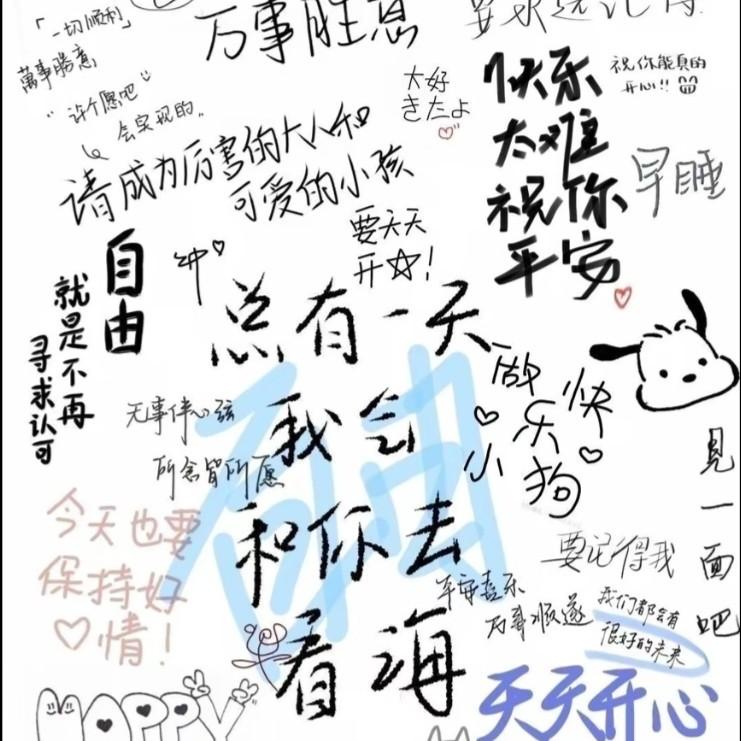 「一切顺利」
萬事勝意
"许个愿吧
会实现的"
万事胜意
请成为厉害的大人和
可爱的小孩
大好
きだよ
快乐
太难
祝你
平安
祝你能真的
开心!!
早睡
要天天
开☆!
自由
就是不再
寻求认可
总有一天
我会
和你去
看海
无事伴心弦
所念皆所愿
做
快
乐
小
狗
见一面吧
今天也要
保持好
♡情!
要记得我
平安喜乐
万事顺遂
我们都会有
很好的未来
HAPPY
天天开心